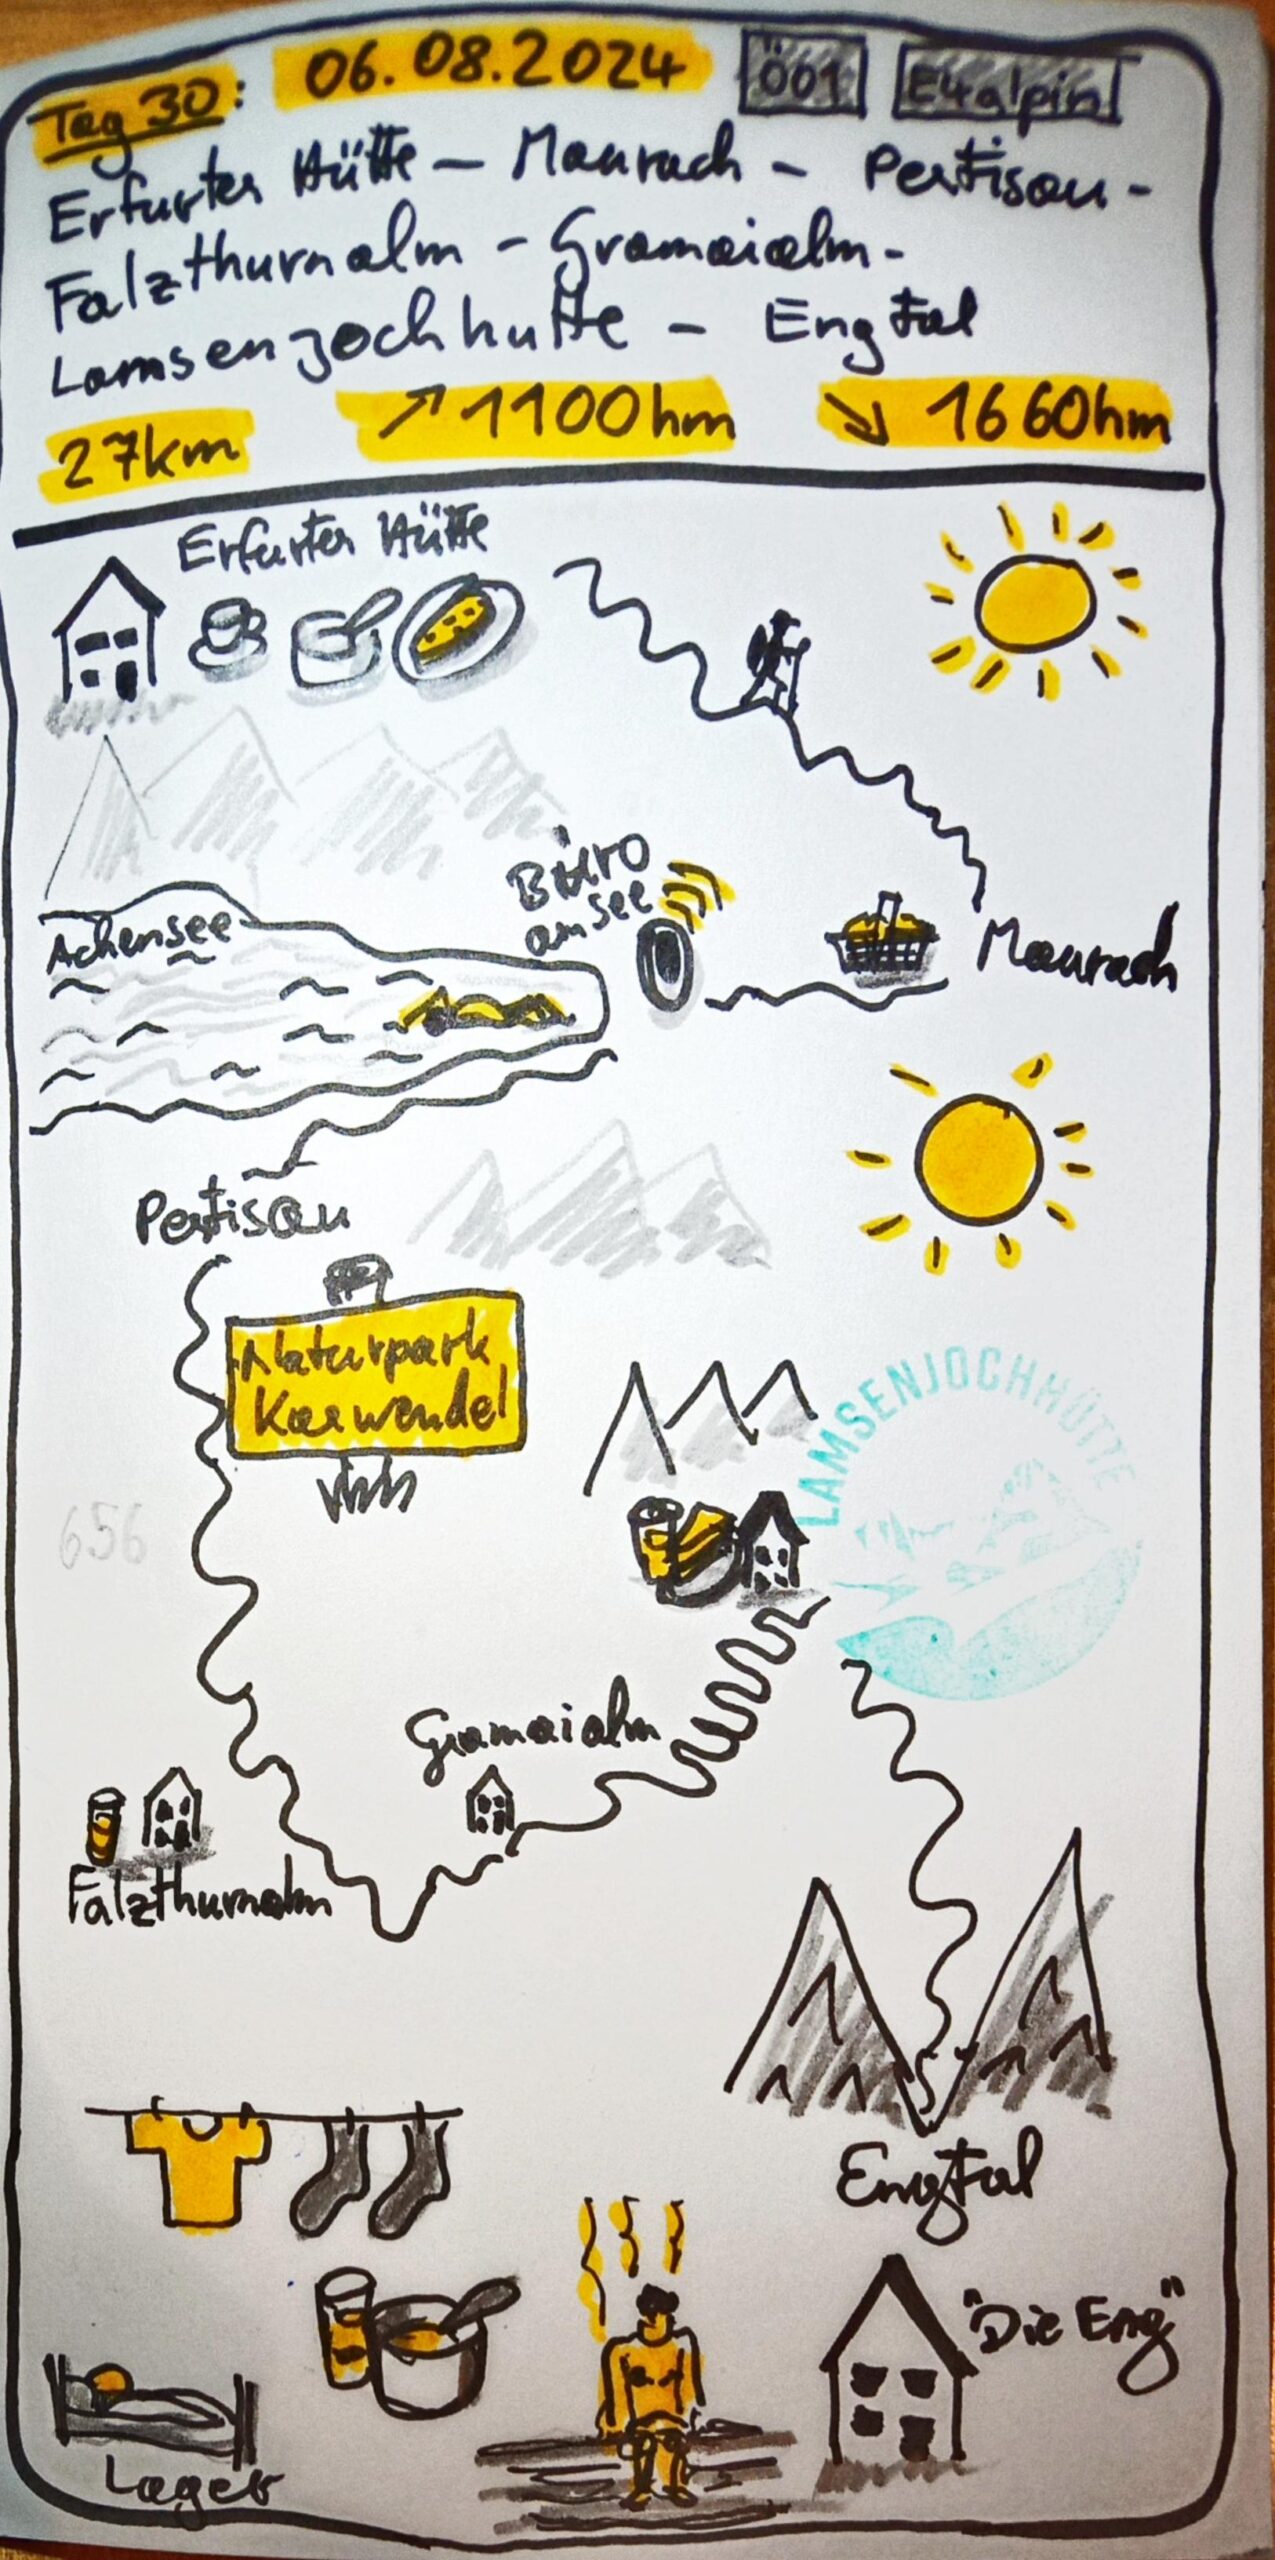 Tag 30: 06.08.2024 Ö01 E4alpin
Erfurter Hütte – Maurach – Pertisau -
Falzthurnalm - Gramaialm -
Lamsenjochhütte – Engtal
27km ↗1100hm ↘ 1660hm
Erfurter Hütte
Büro
am see
Achensee
Maurach
Pertisau
Naturpark
Karwendel
LAMSENJOCHHÜTTE
656
Gramaialm
Falzthurnalm
Engtal
"Die Eng"
Lager